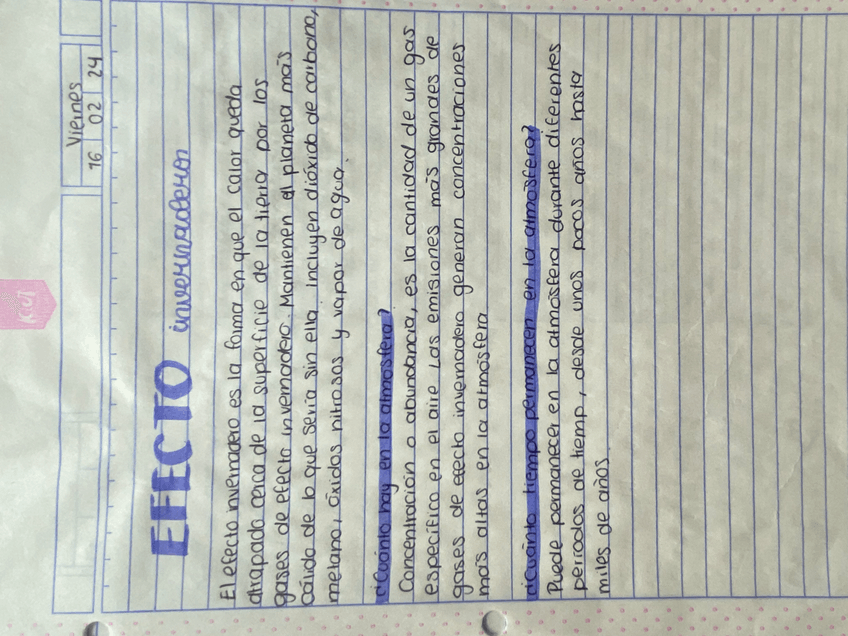 Viernes
16 02 24
EFECTO invernadero
El efecto invernadero es la forma en que el calor queda
atrapado cerca de la superficie de la tierra por los
gases de efecto invernadero. Mantienen al planeta más
cálido de lo que sería sin ella. Incluyen dióxido de carbono,
metano, óxidos nitrosos y vapor de agua.
¿Cuánto hay en la atmosfera?
Concentración o abundancia, es la cantidad de un gas
específico en el aire Las emisiones más grandes de
gases de efecto invernadero generan concentraciones
más altas en la atmósfera
¿Cuánto tiempo permanecen en la atmosfera?
Puede permanecer en la atmosfera durante diferentes
periodos de tiemp, desde unos pocos años hasta
miles de años.